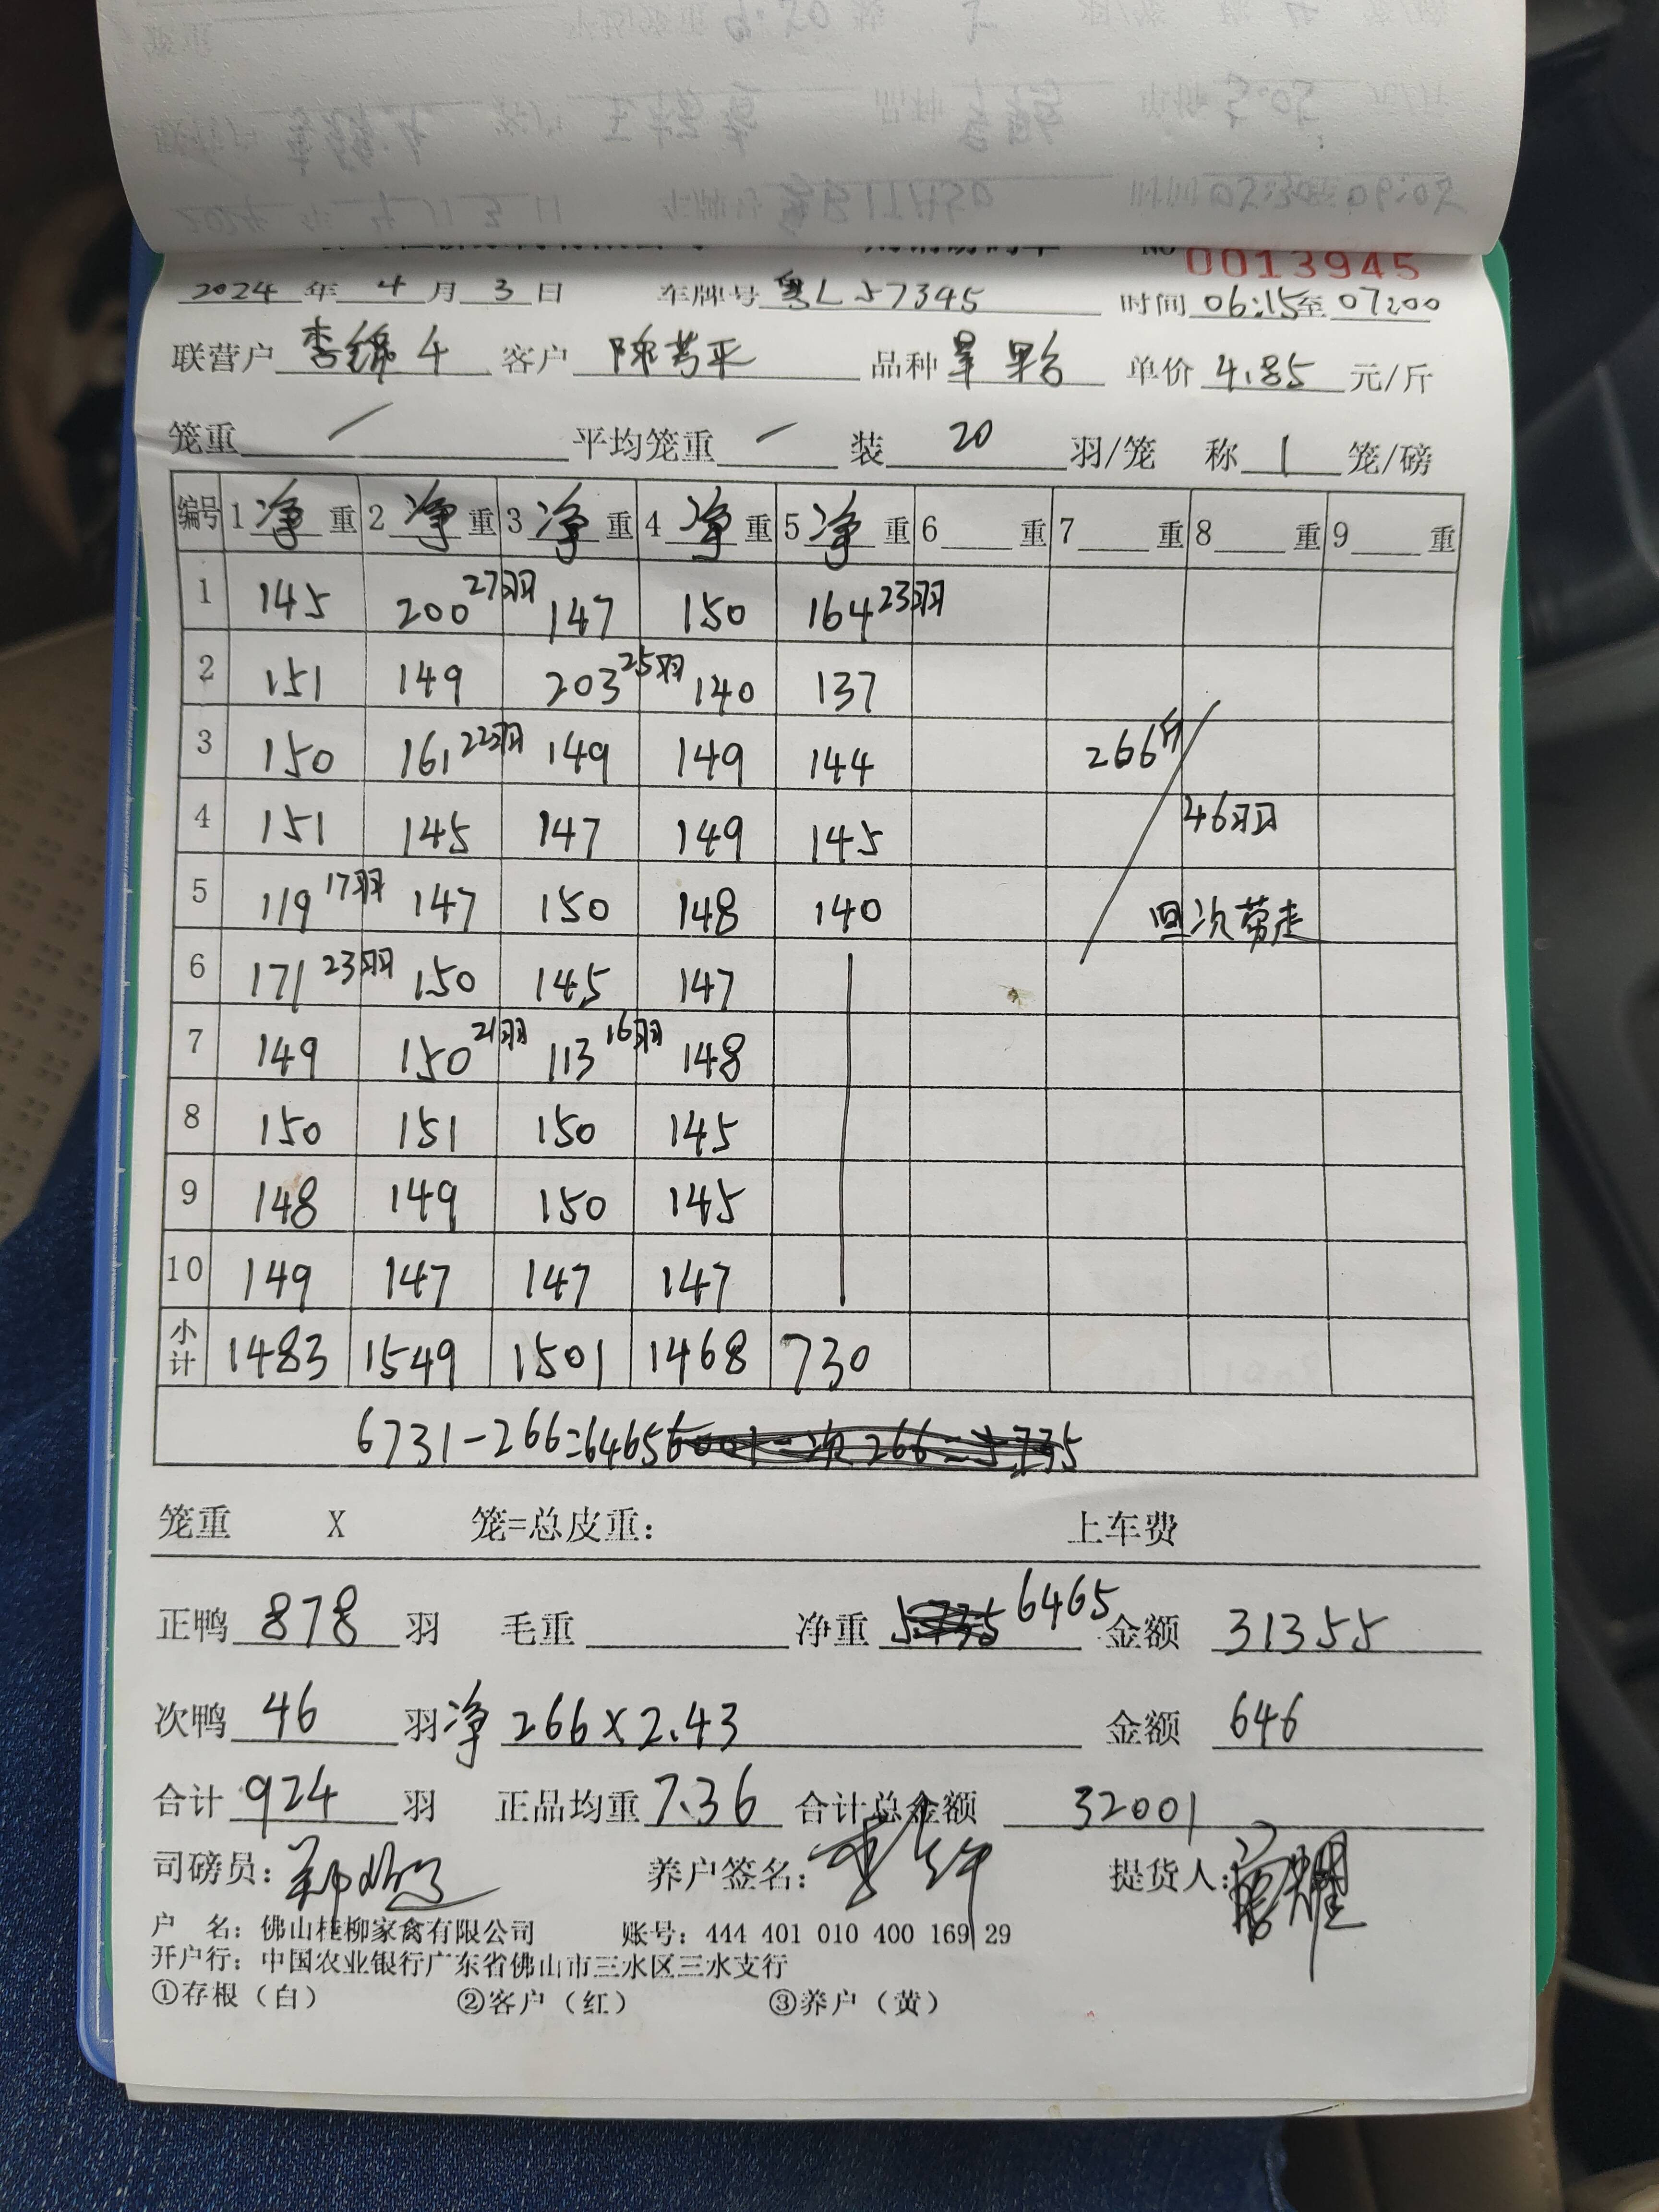 No 0013945
2024 年 4 月 3 日 车牌号 粤L57345 时间 06:15至 07:00
联营户 李锦牛 客户 陈芳平 品种 单价 4.85 元/斤
笼重 / 平均笼重 / 装 20 羽/笼 称 1 笼/磅
编号 1 净 重 2 净 重 3 净 重 4 净 重 5 净 重 6 重 7 重 8 重 9 重
1 145 200 27羽 147 150 164 23羽
2 151 149 203 25羽 140 137
3 150 161 22羽 149 149 144 266斤
4 151 145 147 149 145 46羽
5 119 17羽 147 150 148 140 回次带走
6 171 23羽 150 145 147
7 149 150 21羽 113 16羽 148
8 150 151 150 145
9 148 149 150 145
10 149 147 147 147
小计 1483 1549 1501 1468 730
6731-266=6465
笼重 X 笼=总皮重: 上车费
正鸭 878 羽 毛重 净重 6465 金额 31355
次鸭 46 羽 净 266×2.43 金额 646
合计 924 羽 正品均重 7.36 合计总金额 32001
司磅员: 养户签名: 提货人:
户 名: 佛山桂柳家禽有限公司 账号: 444 401 010 400 169 29
开户行: 中国农业银行广东省佛山市三水区三水支行
①存根(白) ②客户(红) ③养户(黄)